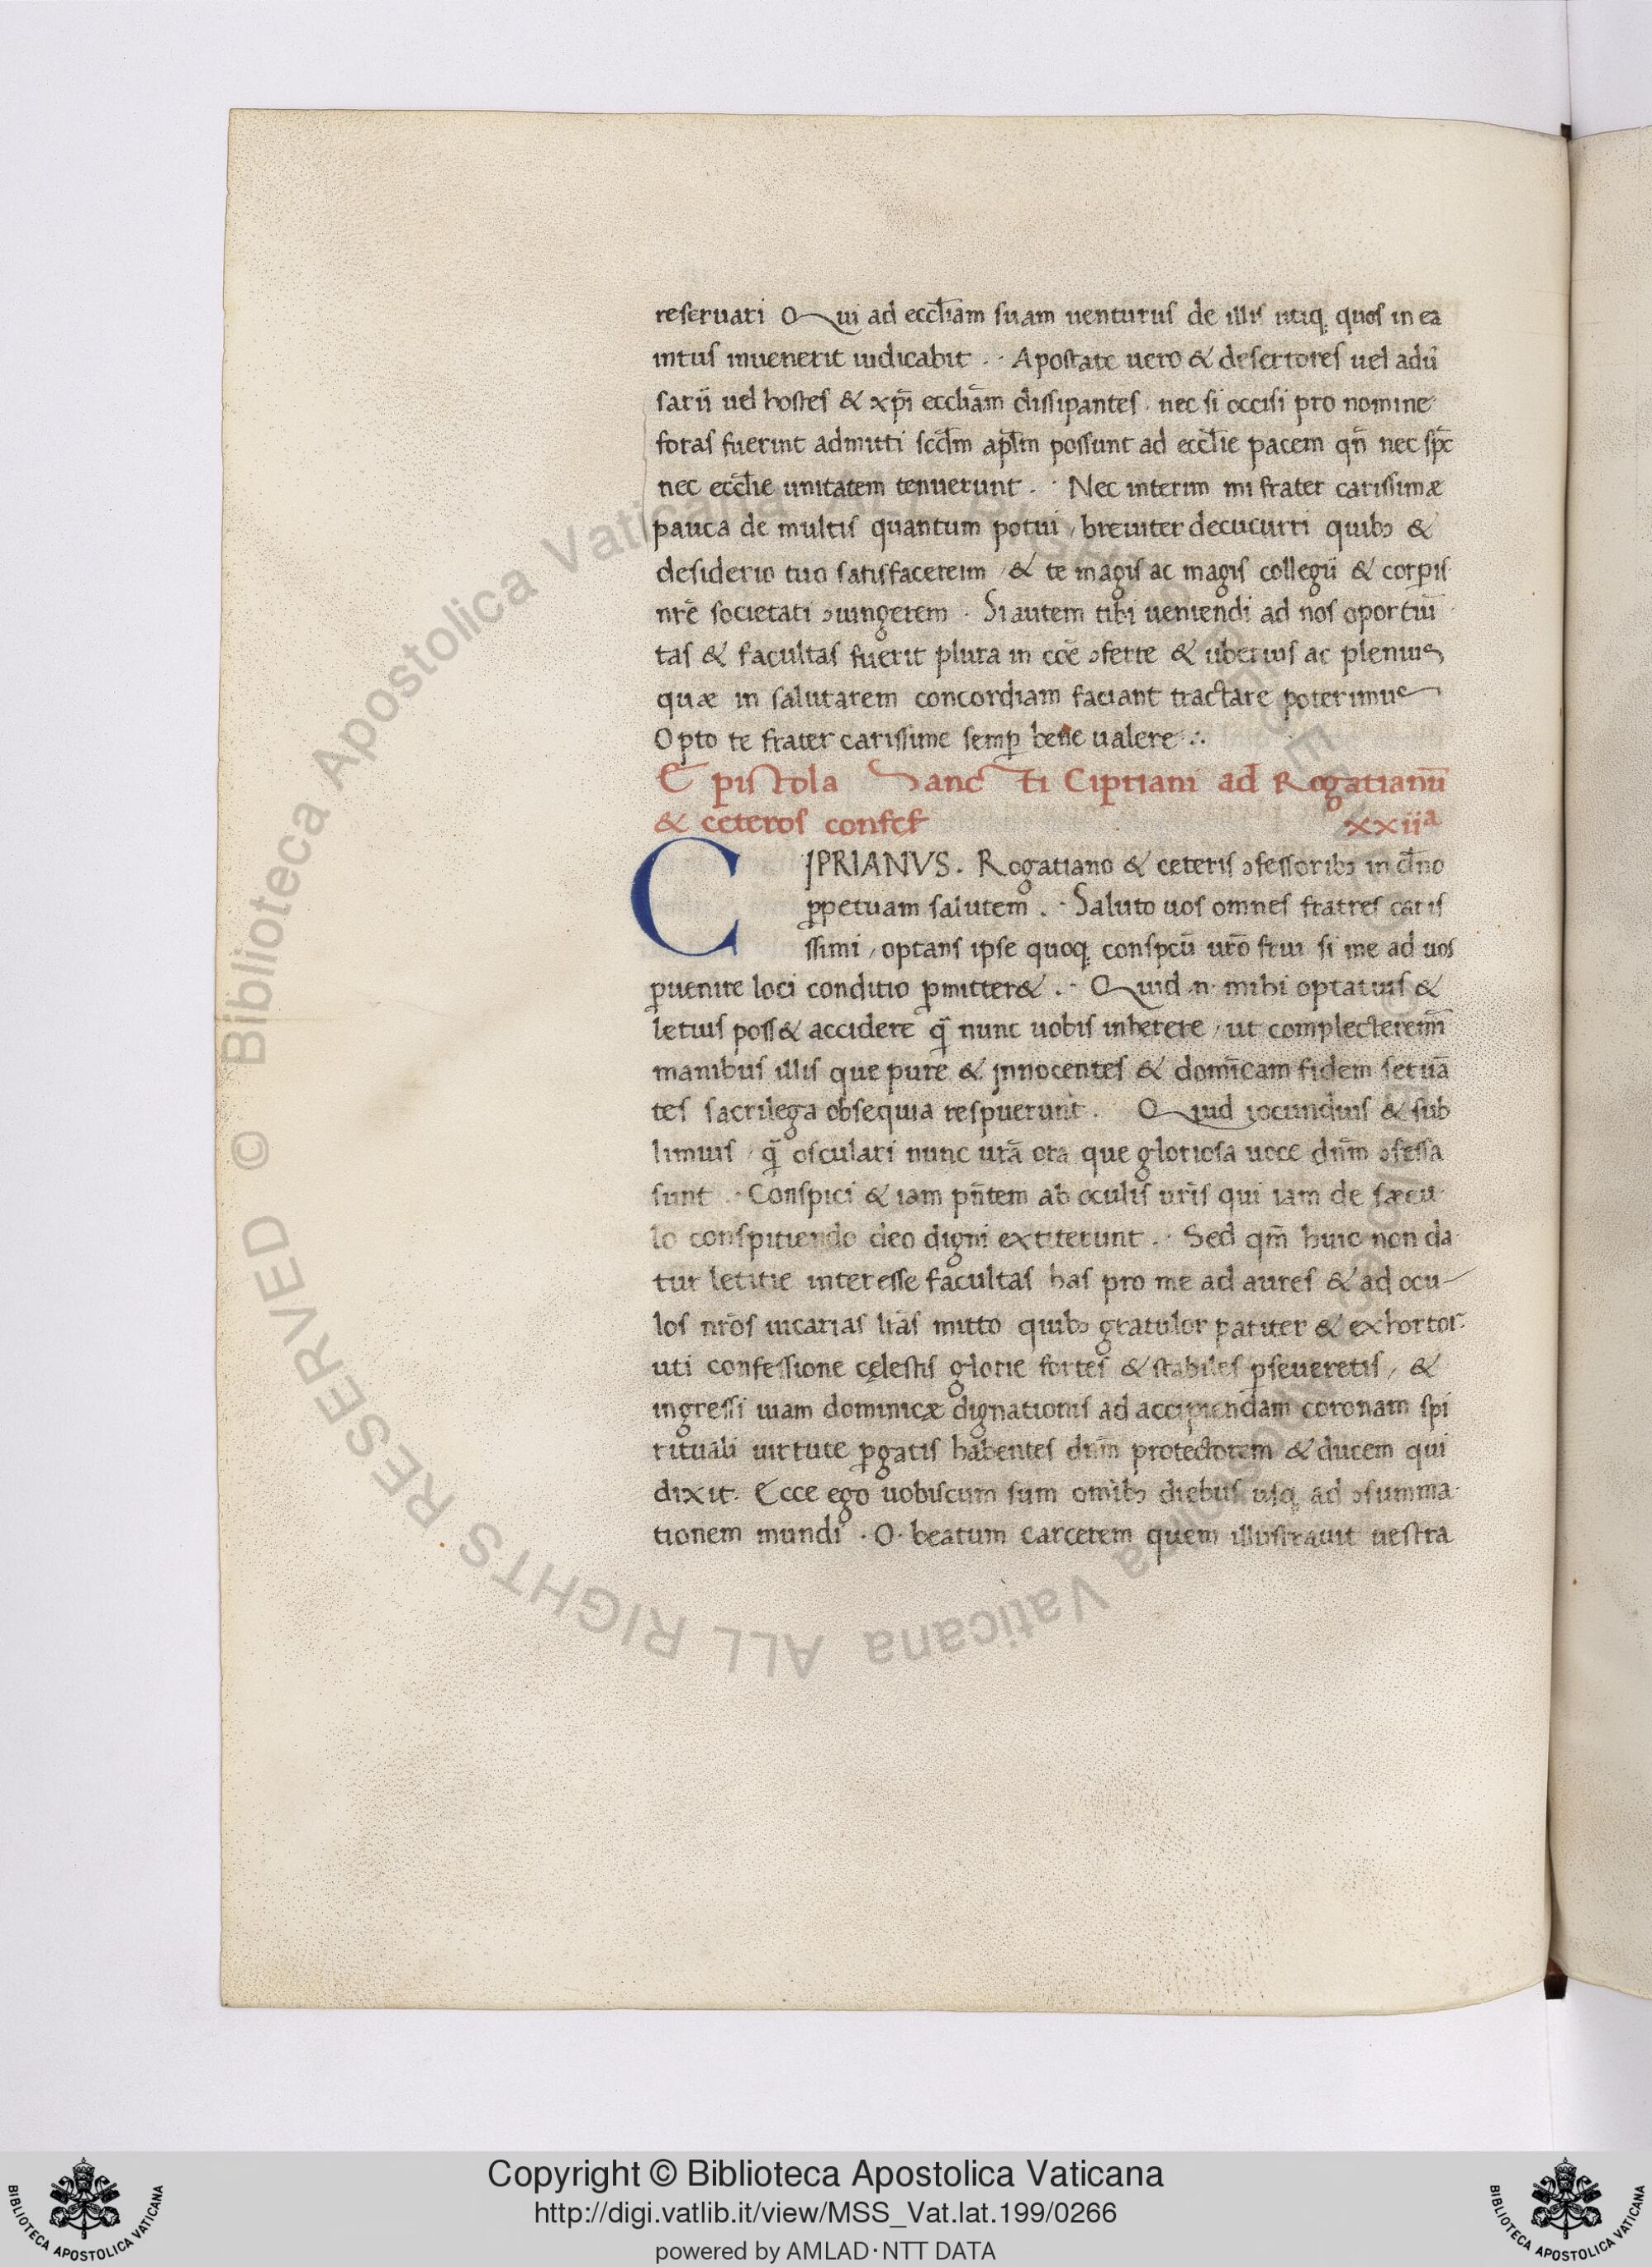 reseruari Qui ad eccl̄iam suam uenturus de illis utiqꝫ quos in ea
intus inuenerit iudicabit . · Apostate uero & desertores uel adū
sarii uel hostes & xp̄i eccliām dissipantes · nec si occisi pro nomine
foras fuerint admitti scd̄m apl̄m possunt ad eccl̄ie pacem qn̄ nec sp̄c
nec eccl̄ie unitatem tenuerunt . · Nec interim mi frater carissimæ
pauca de multis quantum potui , breuiter decucurri quibꝫ &
desiderio tuo satisfacerem , & te magis ac magis collegii & corꝑis
nr̄e societati ꝯiungerem . Si autem tibi ueniendi ad nos oportūi
tas & facultas fuerit plura in cōe ꝯferre & uberius ac plenius
quæ in salutarem concordiam faciant tractare poterimus
Opto te frater carissime semꝑ bene ualere ∴
Epistola Sancti Cipriani ad Rogatianū
& ceteros confes xxiiª
CIPRIANVS . Rogatiano & ceteris ꝯfessoribꝫ in dn̄o
ꝑpetuam salutem . · Saluto uos omnes fratres caris
ssimi , optans ipse quoqꝫ conspcū ur̄o frui si me ad uos
ꝑuenire loci conditio ꝑmitter& . · Quid .n. mihi optatius &
letius poss& accidere q̄ nunc uobis inherere , ut complecterem̄
manibus illis que pure & innocentes & domīcam fidem seruā
tes sacrilega obsequia respuerunt . Quid iocundius & sub
limius , q̄ osculari nunc urā ora que gloriosa uoce dn̄m ꝯfessa
sunt . · Conspici & iam pn̄tem ab oculis ur̄is qui iam de sæcu
lo conspitiendo deo digni extiterunt . · Sed qm̄ huic non da
tur letitie interesse facultas has pro me ad aures & ad ocu
los nr̄os uicarias lr̄as mitto quibꝫ gratulor pariter & exhortor
uti confessione cęlestis glorie fortes & stabiles ꝑseueretis , &
ingressi uiam dominicæ dignationis ad accipiendam coronam spi
rituali uirtute ꝑgatis habentes dn̄m protectorem & ducem qui
dixit . Ecce ego uobiscum sum omībꝫ diebus usqꝫ ad ꝯsumma
tionem mundi · O · beatum carcerem quem illustrauit uestra
© Biblioteca Apostolica Vaticana ALL RIGHTS RESERVED
Copyright © Biblioteca Apostolica Vaticana
http://digi.vatlib.it/view/MSS_Vat.lat.199/0266
powered by AMLAD·NTT DATA
BIBLIOTECA APOSTOLICA VATICANA
BIBLIOTECA APOSTOLICA VATICANA